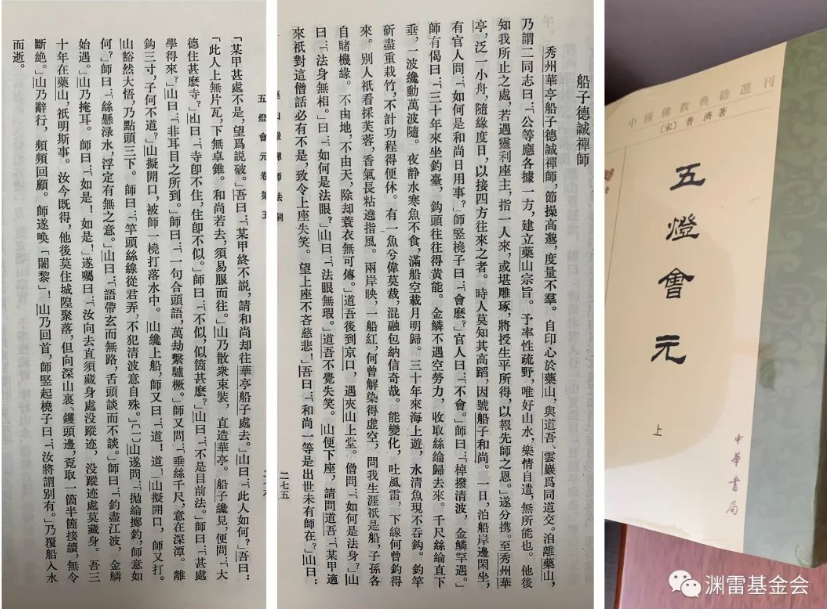 中國佛教典籍選刊
〔宋〕普濟著
五燈會元
上
中華書局
船子德誠禪師
秀州華亭船子德誠禪師，節操高邈，度量不羣。自印心於藥山，與道吾、雲巖爲同道交。洎離藥山，
乃謂二同志曰：「公等應各據一方，建立藥山宗旨。予率性疎野，唯好山水，樂情自遣，無所能也。他後
知我所止之處，若遇靈利座主，指一人來，或堪雕琢，將授生平所得，以報先師之恩。」遂分攜。至秀州華
亭，泛一小舟，隨緣度日，以接四方往來之者。時人莫知其高蹈，因號船子和尚。一日，泊船岸邊閑坐，
有官人問：「如何是和尚日用事？」師豎橈子曰：「會麽？」官人曰：「不會。」師曰：「棹撥清波，金鱗罕遇。」
師有偈曰：「三十年來坐釣臺，鈎頭往往得黃能。金鱗不遇空勞力，收取絲綸歸去來。千尺絲綸直下
垂，一波纔動萬波隨。夜靜水寒魚不食，滿船空載月明歸。三十年來海上遊，水清魚現不吞鈎。釣竿
斫盡重栽竹，不計功程得便休。有一魚兮偉莫裁，混融包納信奇哉。能變化，吐風雷，下線何曾釣得
來。別人祇看採芙蓉，香氣長粘遶指風。兩岸映，一船紅，何曾解染得虛空。問我生涯祇是船，子孫各
自賭機緣。不由地，不由天，除却蓑衣無可傳。」道吾後到京口，遇夾山上堂。僧問：「如何是法身？」山
曰：「法身無相。」曰：「如何是法眼？」山曰：「法眼無瑕。」道吾不覺失笑。山便下座，請問道吾：「某甲適
來祇對這僧話必有不是，致令上座失笑。望上座不吝慈悲！」吾曰：「和尚一等是出世未有師在？」山曰：
二七五
五燈會元卷第五
二七六
「某甲甚處不是，望爲説破。」吾曰：「某甲終不説，請和尚却往華亭船子處去。」山曰：「此人如何？」吾曰：
「此人上無片瓦，下無卓錐。和尚若去，須易服而往。」山乃散衆束裝，直造華亭。船子纔見，便問：「大
德住甚麽寺？」山曰：「寺即不住，住即不似。」師曰：「不似，似箇甚麽？」山曰：「不是目前法。」師曰：「甚處
學得來？」山曰：「非耳目之所到。」師曰：「一句合頭語，萬劫繫驢橛。」師又問：「垂絲千尺，意在深潭。離
鈎三寸，子何不道？」山擬開口，被師一橈打落水中。山纔上船，師又曰：「道！道！」山擬開口，師又打。
山豁然大悟，乃點頭三下。師曰：「竿頭絲線從君弄，不犯清波意自殊。」〔一〕山遂問：「抛綸擲釣，師意如
何？」師曰：「絲懸淥水，浮定有無之意。」山曰：「語帶玄而無路，舌頭談而不談。」師曰：「釣盡江波，金鱗
始遇。」山乃掩耳。師曰：「如是！如是！」遂囑曰：「汝向去直須藏身處没蹤迹，没蹤迹處莫藏身。吾三
十年在藥山，祇明斯事。汝今既得，他後莫住城隍聚落，但向深山裏、钁頭邊，覓取一箇半箇接續，無令
斷絶。」山乃辭行，頻頻回顧。師遂喚「闍黎」！山乃回首，師豎起橈子曰：「汝將謂別有。」乃覆船入水
而逝。
渊雷基金会